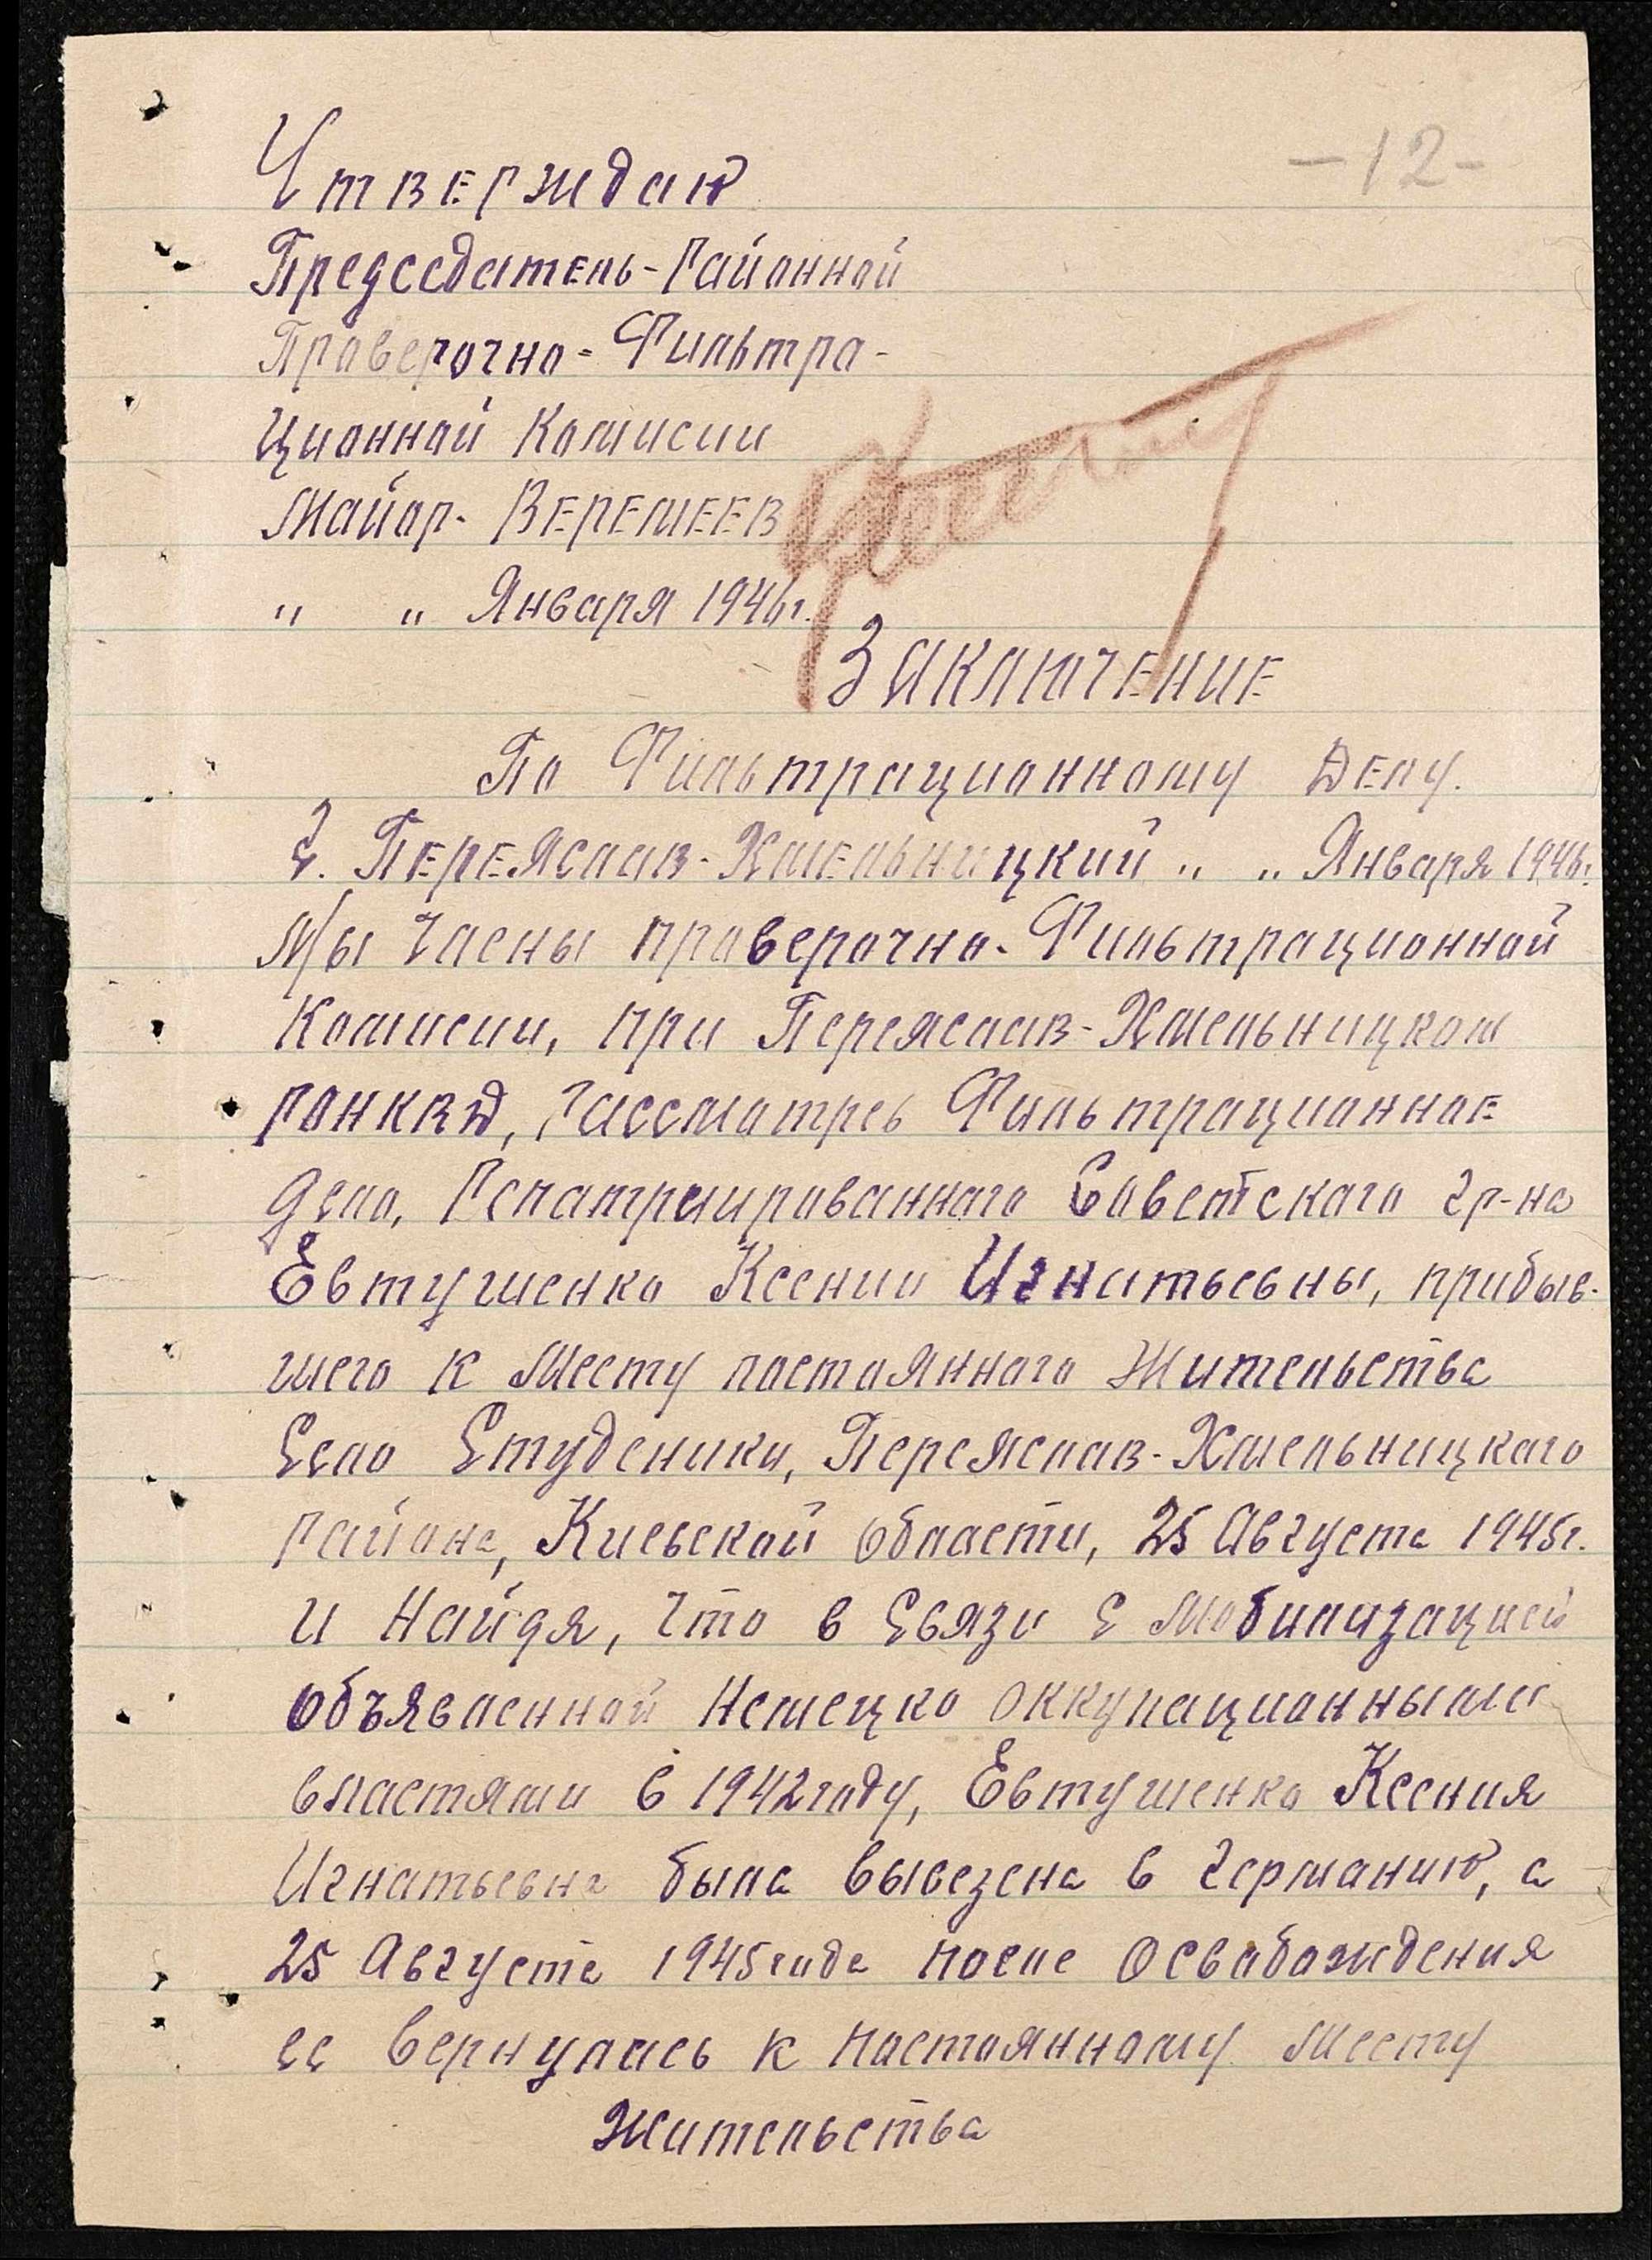 -12-
Утверждаю
Председатель-Районной
Проверочно-Фильтра-
Ционной Комисии
Майор- ВЕРЕМЕЕВ
" " Января 1946г.
ЗАКЛЮЧЕНИЕ
По Фильтрационному Делу.
г. ПЕРЕЯСЛАВ-ХМЕЛЬНИЦКИЙ " " Января 1946г.
Мы Члены проверочно-Фильтрационной
Комисии, при Переяслав-Хмельницком
РОНКВД, Рассмотрев Фильтрационное
дело, Репатриированного Советского гр-на
Евтушенко Ксении Игнатьевны, прибыв-
шего к Месту постоянного Жительства
Село Студеники, Переяслав-Хмельницкого
Района, Киевской области, 25 Августа 1945г.
и Найдя, что в Связи с мобилизацией
объявленной Немецко оккупационными
властями в 1942году, Евтушенко Ксения
Игнатьевна была вывезена в Германию, а
25 Августа 1945года после Освабождения
ее вернулась к постоянному Месту
Жительства